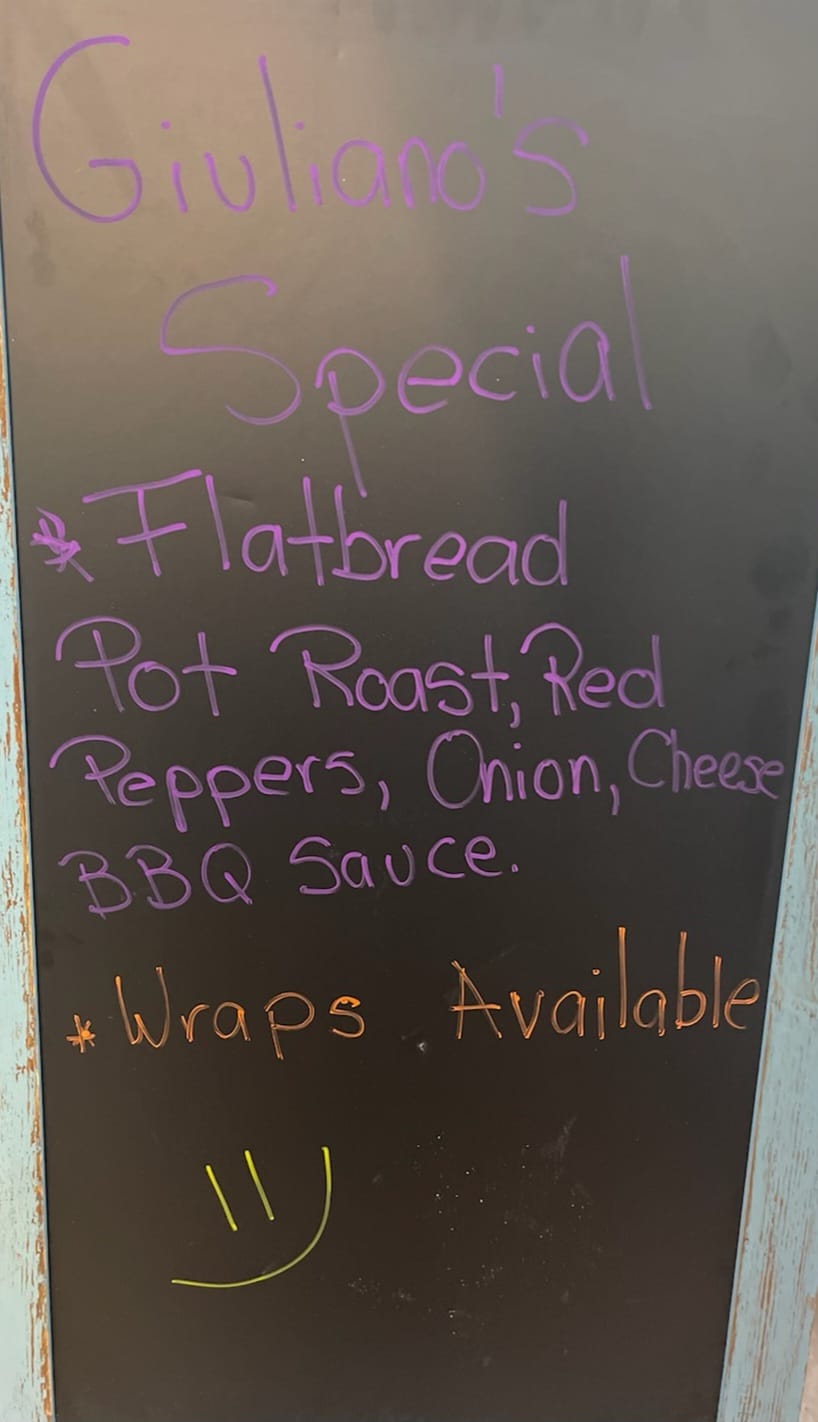 Giuliano's
Special
* Flatbread
Pot Roast, Red
Peppers, Onion, Cheese
BBQ Sauce.
* Wraps Available